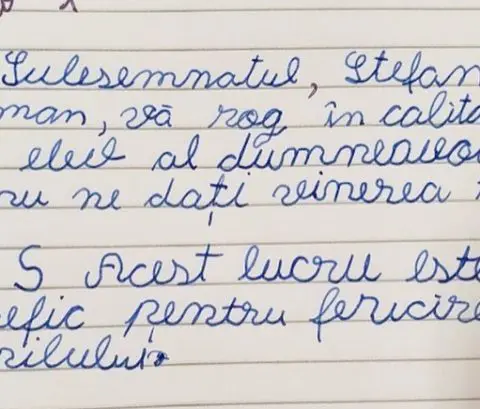 Subsemnatul, Ștefan
man, vă rog în calita
elev al dumneavoa
ru ne dați vinerea
S Acest lucru este
efic pentru fericire
rilului